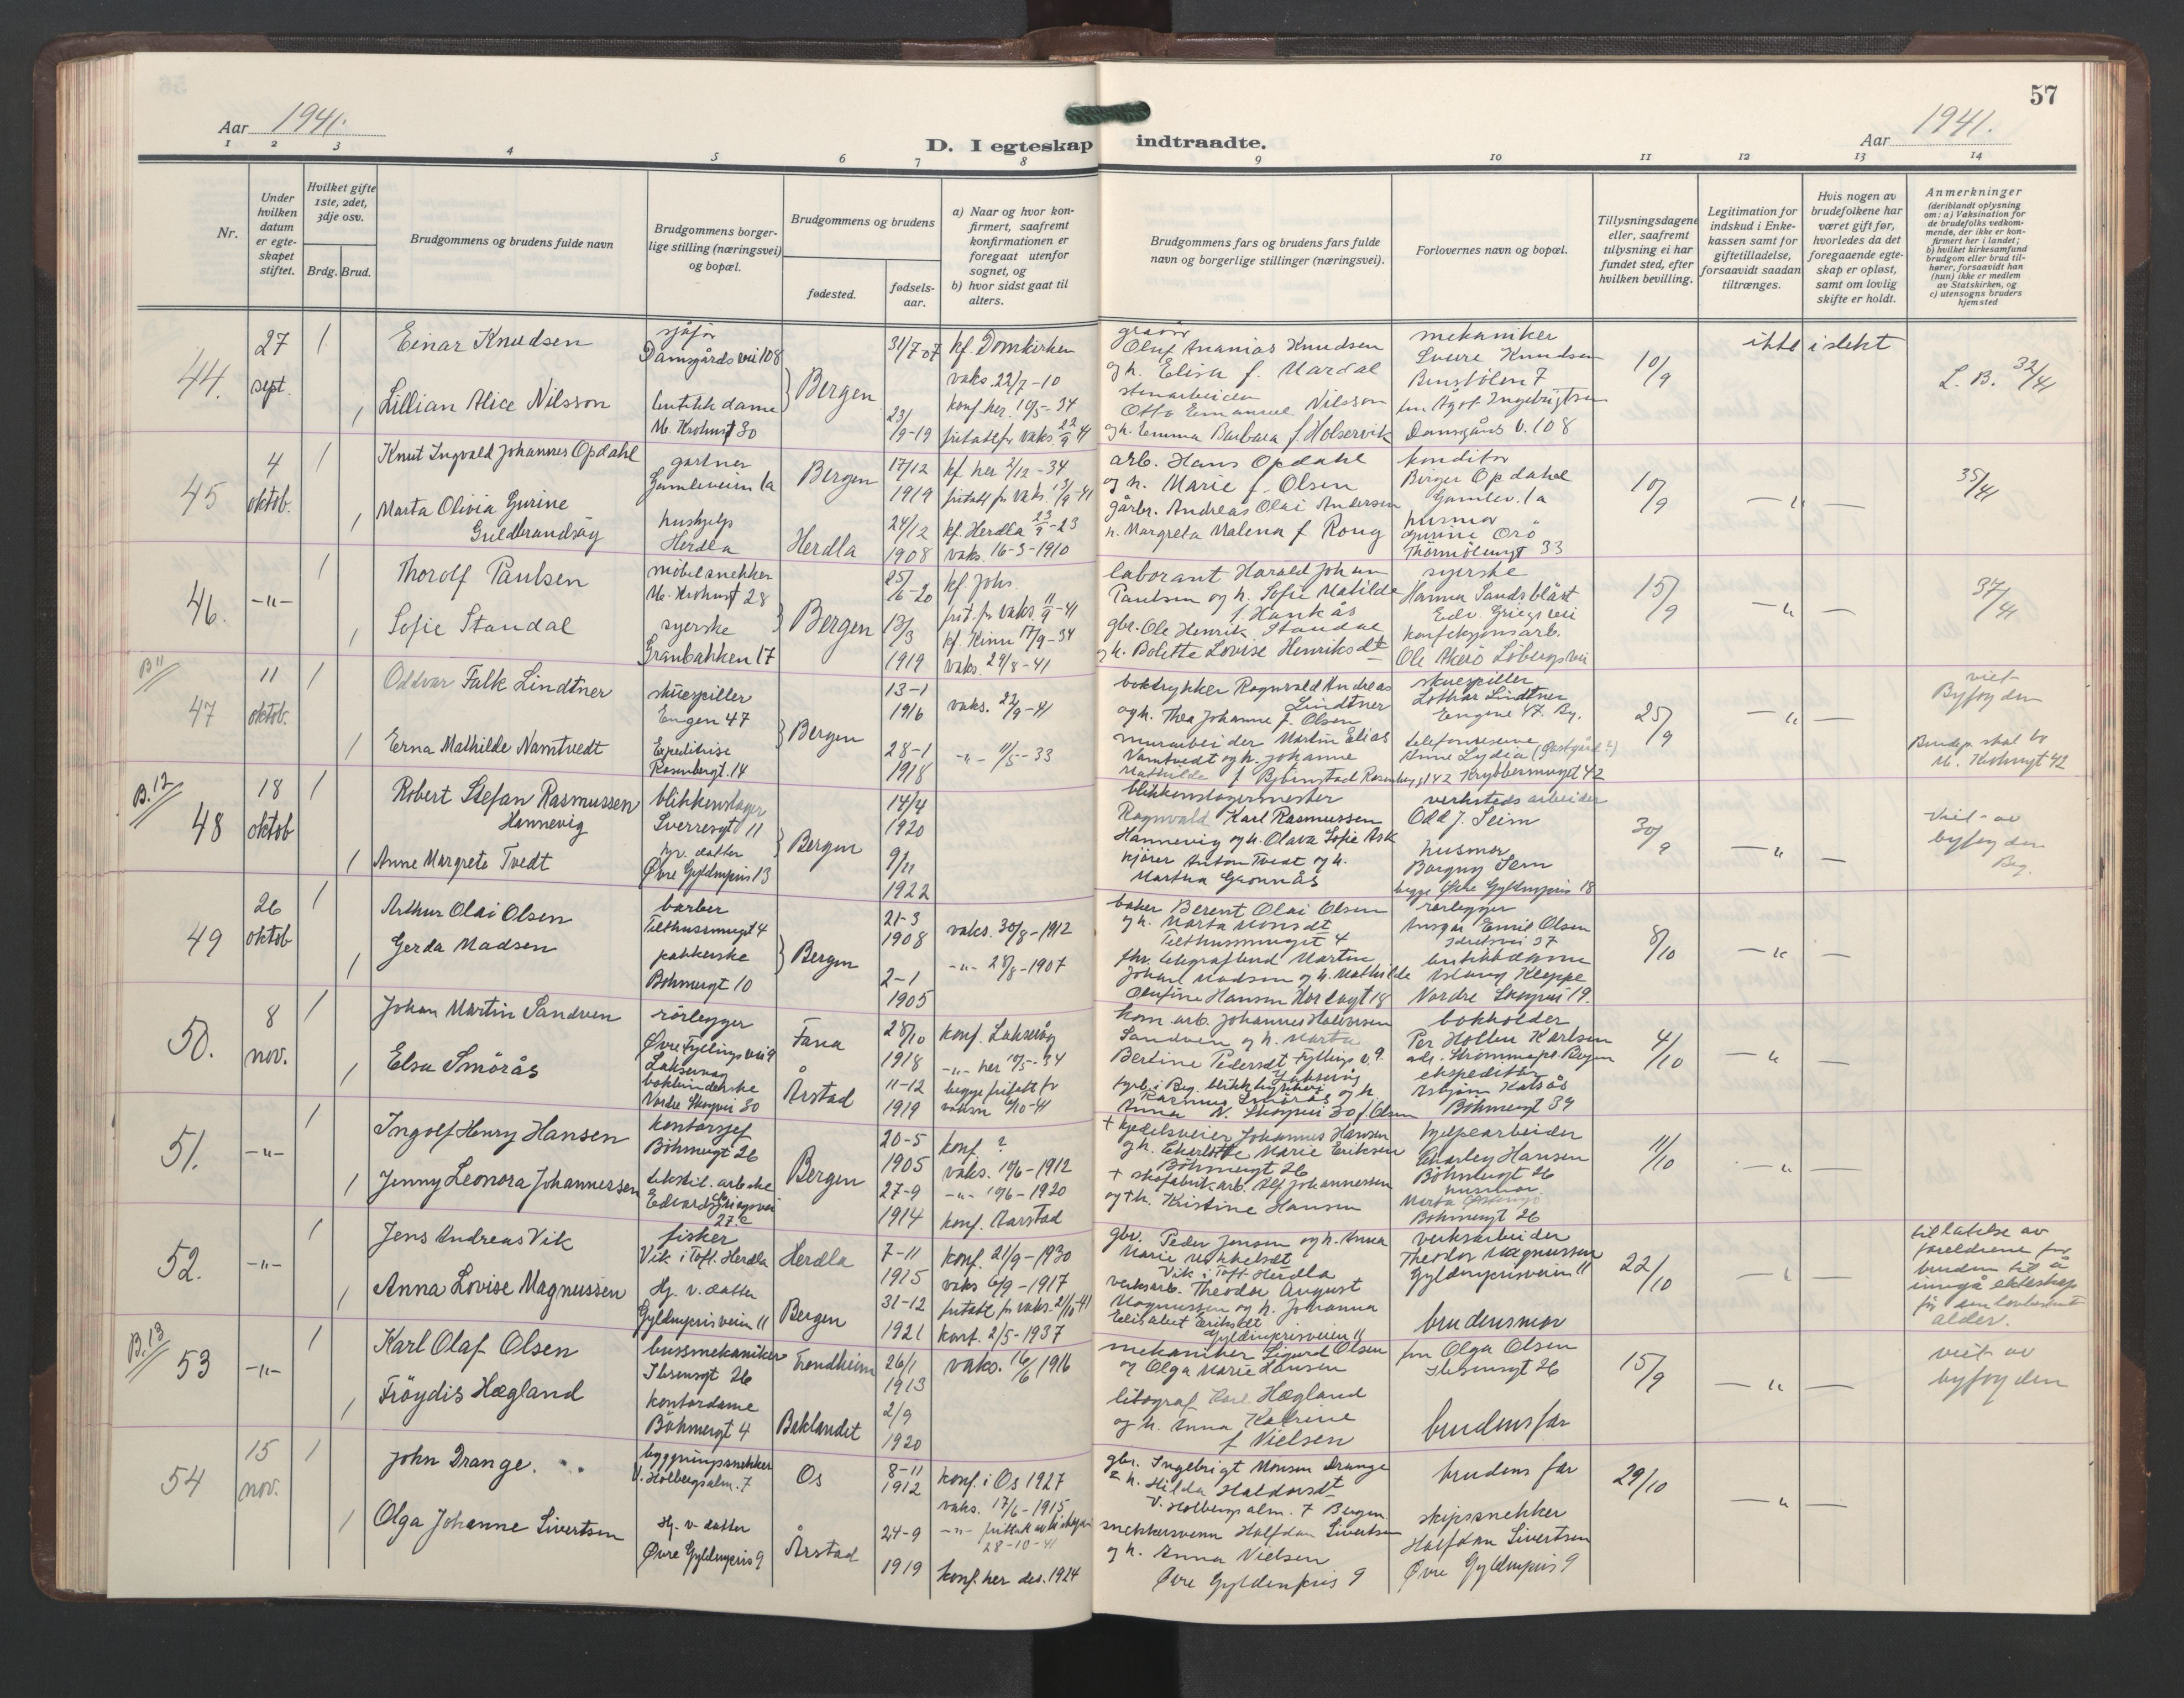 57
Aar 1941.
Aar 1941.
D. I egteskap indtraadte.
1 2 3 4 5 6 7 8 9 10 11 12 13 14
Nr.
Under hvilken datum er egte-skapet stiftet.
Hvilket gifte 1ste, 2det, 3dje osv.
Brdg. Brud.
Brudgommens og brudens fulde navn
Brudgommens borger-lige stilling (næringsvei) og bopæl.
Brudgommens og brudens
fødested.
fødsels-aar.
a) Naar og hvor kon-firmert, saafremt konfirmationen er foregaat utenfor sognet, og
b) hvor sidst gaat til alters.
Brudgommens fars og brudens fars fulde navn og borgerlige stillinger (næringsvei).
Forlovernes navn og bopæl.
Tillysningsdagene eller, saafremt tillysning ei har fundet sted, efter hvilken bevilling.
Legitimation for indskud i Enke-kassen samt for giftetilladelse, forsaavidt saadan tiltrænges.
Hvis nogen av brudefolkene har været gift før, hvorledes da det foregaaende egte-skap er opløst, samt om lovlig skifte er holdt.
Anmerkninger
(deriblandt oplysning om: a) Vaksination for de brudefolks vedkom-mende, der ikke er kon-firmert her i landet; b) hvilket kirkesamfund brudgom eller brud til-hører, forsaavidt han (hun) ikke er medlem av Statskirken, og c) utensogns bruders hjemsted
44. 27 sept. 1
Einar Knudsen
sjåfør
Damsgårds vei 108
Bergen
31/7 07
kf. Domkirken
vaks. 22/7-10
Oluf Ananias Knudsen
og h. Elisa f. Mardal
mekaniker
Sverre Knudsen
10/9
ikke i slekt
L. B. 32/41
1 Lillian Alice Nilsson
butikkdame
M. Krohnsgt 30
23/9-19
konf. her 10/5-34
fritatt fr vaks. 22/9 41
Otto Emanuel Nilsson
og h. Emma Barbara f. Holservik
fru Ågot Ingebrigtsen
Damsgårds v. 108
45 4 oktob. 1
Knut Ingvald Johannes Opdahl
gartner
Gamleveien 1a
Bergen
17/12 1919
kf her 2/12-34
arb. Hans Opdahl
og h. Marie f. Olsen
konditor
Birger Opdahl
Gamlev. 1a
10/9
— " —
35/41
1 Marta Olivia Gurine
Guldbrandsøy
hushjelp
Herdla
Herdla
24/12 1908
kf. Herdla 23/9-23
vaks. 16-3-1910
gårbr. Andreas Olai Andersen
h. Margreta Malena f Rong
husmor
Gurine Orö
Thormölensgt 33
46. -"- 1
Thorolf Paulsen
möbelsnekker
M. Krohnsgt 28
Bergen
25/6-20
kf Johs.
frit. fr vaks. 11/9-41
laborant Harald Johan
Paulsen og h. Sofie Matilde
syerske
Hanna Sandsblåst
Edv. Griegs vei
15/9
— " —
37/41
1 Sofie Standal
syerske
Granbakken 17
13/3 1919
kf Kinn 17/9-34
vaks 29/8-41
gbr. Ole Henrik Standal
og h. Bolette Lovise Henriksdt
konfeksjonsarb.
B 11
47 11 oktob. 1
Oddvar Falk Lindtner
skuespiller
Engen 47
Bergen
13-1 1916
vaks. 22/9-41
boktrykker Ragnvald Andreas
Lindtner
og h. Thea Johanne f. Olsen
skuespiller
Lothar Lindtner
Engene 47. By.
25/9
— " —
viet
Byfogden
1 Erna Mathilde Namtvedt
Expeditrise
Rosenbergt. 14
28-1 1918
-"- 11/5-33
murarbeider Martin Elias
Namtvedt og h. Johanne
Mathilde
Anne Lydia
M. Krohnsgt 42
B. 12
48 18 oktob 1
Robert Stefan Rasmussen
Hannevig
blikkenslager
Sverresgt 11
Bergen
14/4 1920
blikkenslagermester
Ragnvald Karl Rasmussen
Hannevig og h. Olava Sofie Ask
verkstedsarbeider
Odd J. Seim
30/9
— " —
Viet av
byfogden
Bg.
1 Anne Margrete Tvedt
hjv. datter
Øvre Gyldenpris 13
9/11 1922
kjører Anton Tvedt og h.
Martha Grönnås
husmor
begge Øvre Gyldenpris 18
49 26 oktob 1
Arthur Olai Olsen
barber
Tukthussmuget 4
Bergen
21-3 1908
vaks. 30/8-1912
baker Berent Olai Olsen
og h. Marta Monsdt
rörlegger
Ansgar Emil Olsen
8/10
— " —
1 Gerda Madsen
pakkerske
Böhmergt 10
2-1 1905
-"- 28/8-1907
Johan Madsen og h. Mathilde
Olufine Hansen
butikkdame
Nordre Skogvei 19.
50. 8 nov. 1
Johan Martin Sandven
rörlegger
Øvre Fyllingsvei 9
Laksevåg
Fana
28/10 1918
konf. Laksevåg
kom. arb. Johannes Halvorsen
Sandven og h. Marta
Bertine Pedersdt Fyllings v. 9.
Laksevåg
bokholder
4/10
— " —
1 Elsa Smörås
bokbinderske
Nordre Skogvei 30
Årstad
11-12 1919
-"- her 10/5-34
begge fritatt fr
vaksn 6/10-41
Rasmus Smörås og h.
Anna N. Skogvei 30 f. Olsen
ekspeditör
Böhmergt 39
51. -"- 1
Ingolf Henry Hansen
kontorsjef
Böhmergt 26
Bergen
20-5 1905
konf. ?
vaks. 10/6-1912
+ kjedelsveier Johannes Hansen
og h. Charlotte Marie Eriksen
Böhmergt 26
hjelpearbeider
Charley Hansen
Böhmergt 26
11/10
— " —
1 Jenny Leonora Johannessen
tekstil. arb.
Edvard Griegsvei
27 c
27-9 1914
-"- 10/6-1920
konf. Aarstad
+ skofabrikarb. Alf Johannessen
og + h. Kristine Hansen
husmor
Böhmergt 26
52. -"- 1
Jens Andreas Vik
fisker
Vik i Toft. Herdla
Herdla
7-11 1915
konf. 21/9-1930
vaks 6/9-1917
gbr. Peder Jensen og h. Anna
Marie Mikkelsdt
Vik i Toft Herdla
verksarbeider
Theodor Magnussen
Gyldenprisveien 11
22/10
— " —
tillatelse av
foreldrene for
bruden til å
inngå ekteskap
før den lovbestemt
alder.
1 Anna Lovise Magnussen
Hj. v. datter
Gyldenprisveien 11
Bergen
31-12 1921
fritatt fr vaks. 21/10-41
konf. 2/5-1937
verksarb. Theodor August
Magnussen og h. Johanna
Elisabet Eriksdt
Gyldenprisveien 11
brudensmor
B. 13
53 -"- 1
Karl Olaf Olsen
bussmekaniker
Ibsensgt 26
Trondheim
26/1 1913
vaks. 16/6 1916
mekaniker Sigurd Olsen
og Olga Marie Hansen
fru Olga Olsen
Ibsensgt 26
15/9
— " —
viet av
byfogden
1 Fröydis Hægland
kontordame
Böhmergt 4
Baklandet
2/9 1920
litograf Karl Hægland
og h. Anna Katrine
f Nielsen
brudens far
54 15 nov. 1
John Drange.
byggningssnekker
V. Holbergsalm. 7
Os
8-11 1912
konf. i Os 1927
vaks. 17/6-1915
gbr. Ingebrigt Monsen Drange
& h. Hilda Haldorsdt
V. Holbergsalm. 7 Bergen
brudens far
29/10
— " —
1 Olga Johanne Sivertsen
Hj. v. datter
Øvre Gyldenpris 9
Årstad
24-9 1919
28-10-41
konf. her des. 1924
snekkersvenn Halfdan Sivertsen
og h. Anna Nielsen
Øvre Gyldenpris 9
skipssnekker
Halfdan Sivertsen
Øvre Gyldenpris 9